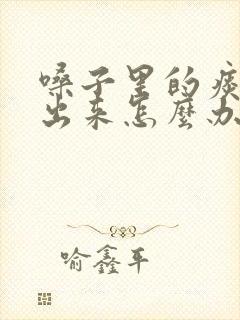 嗓子里的痰
出来怎麽办
喻鑫平